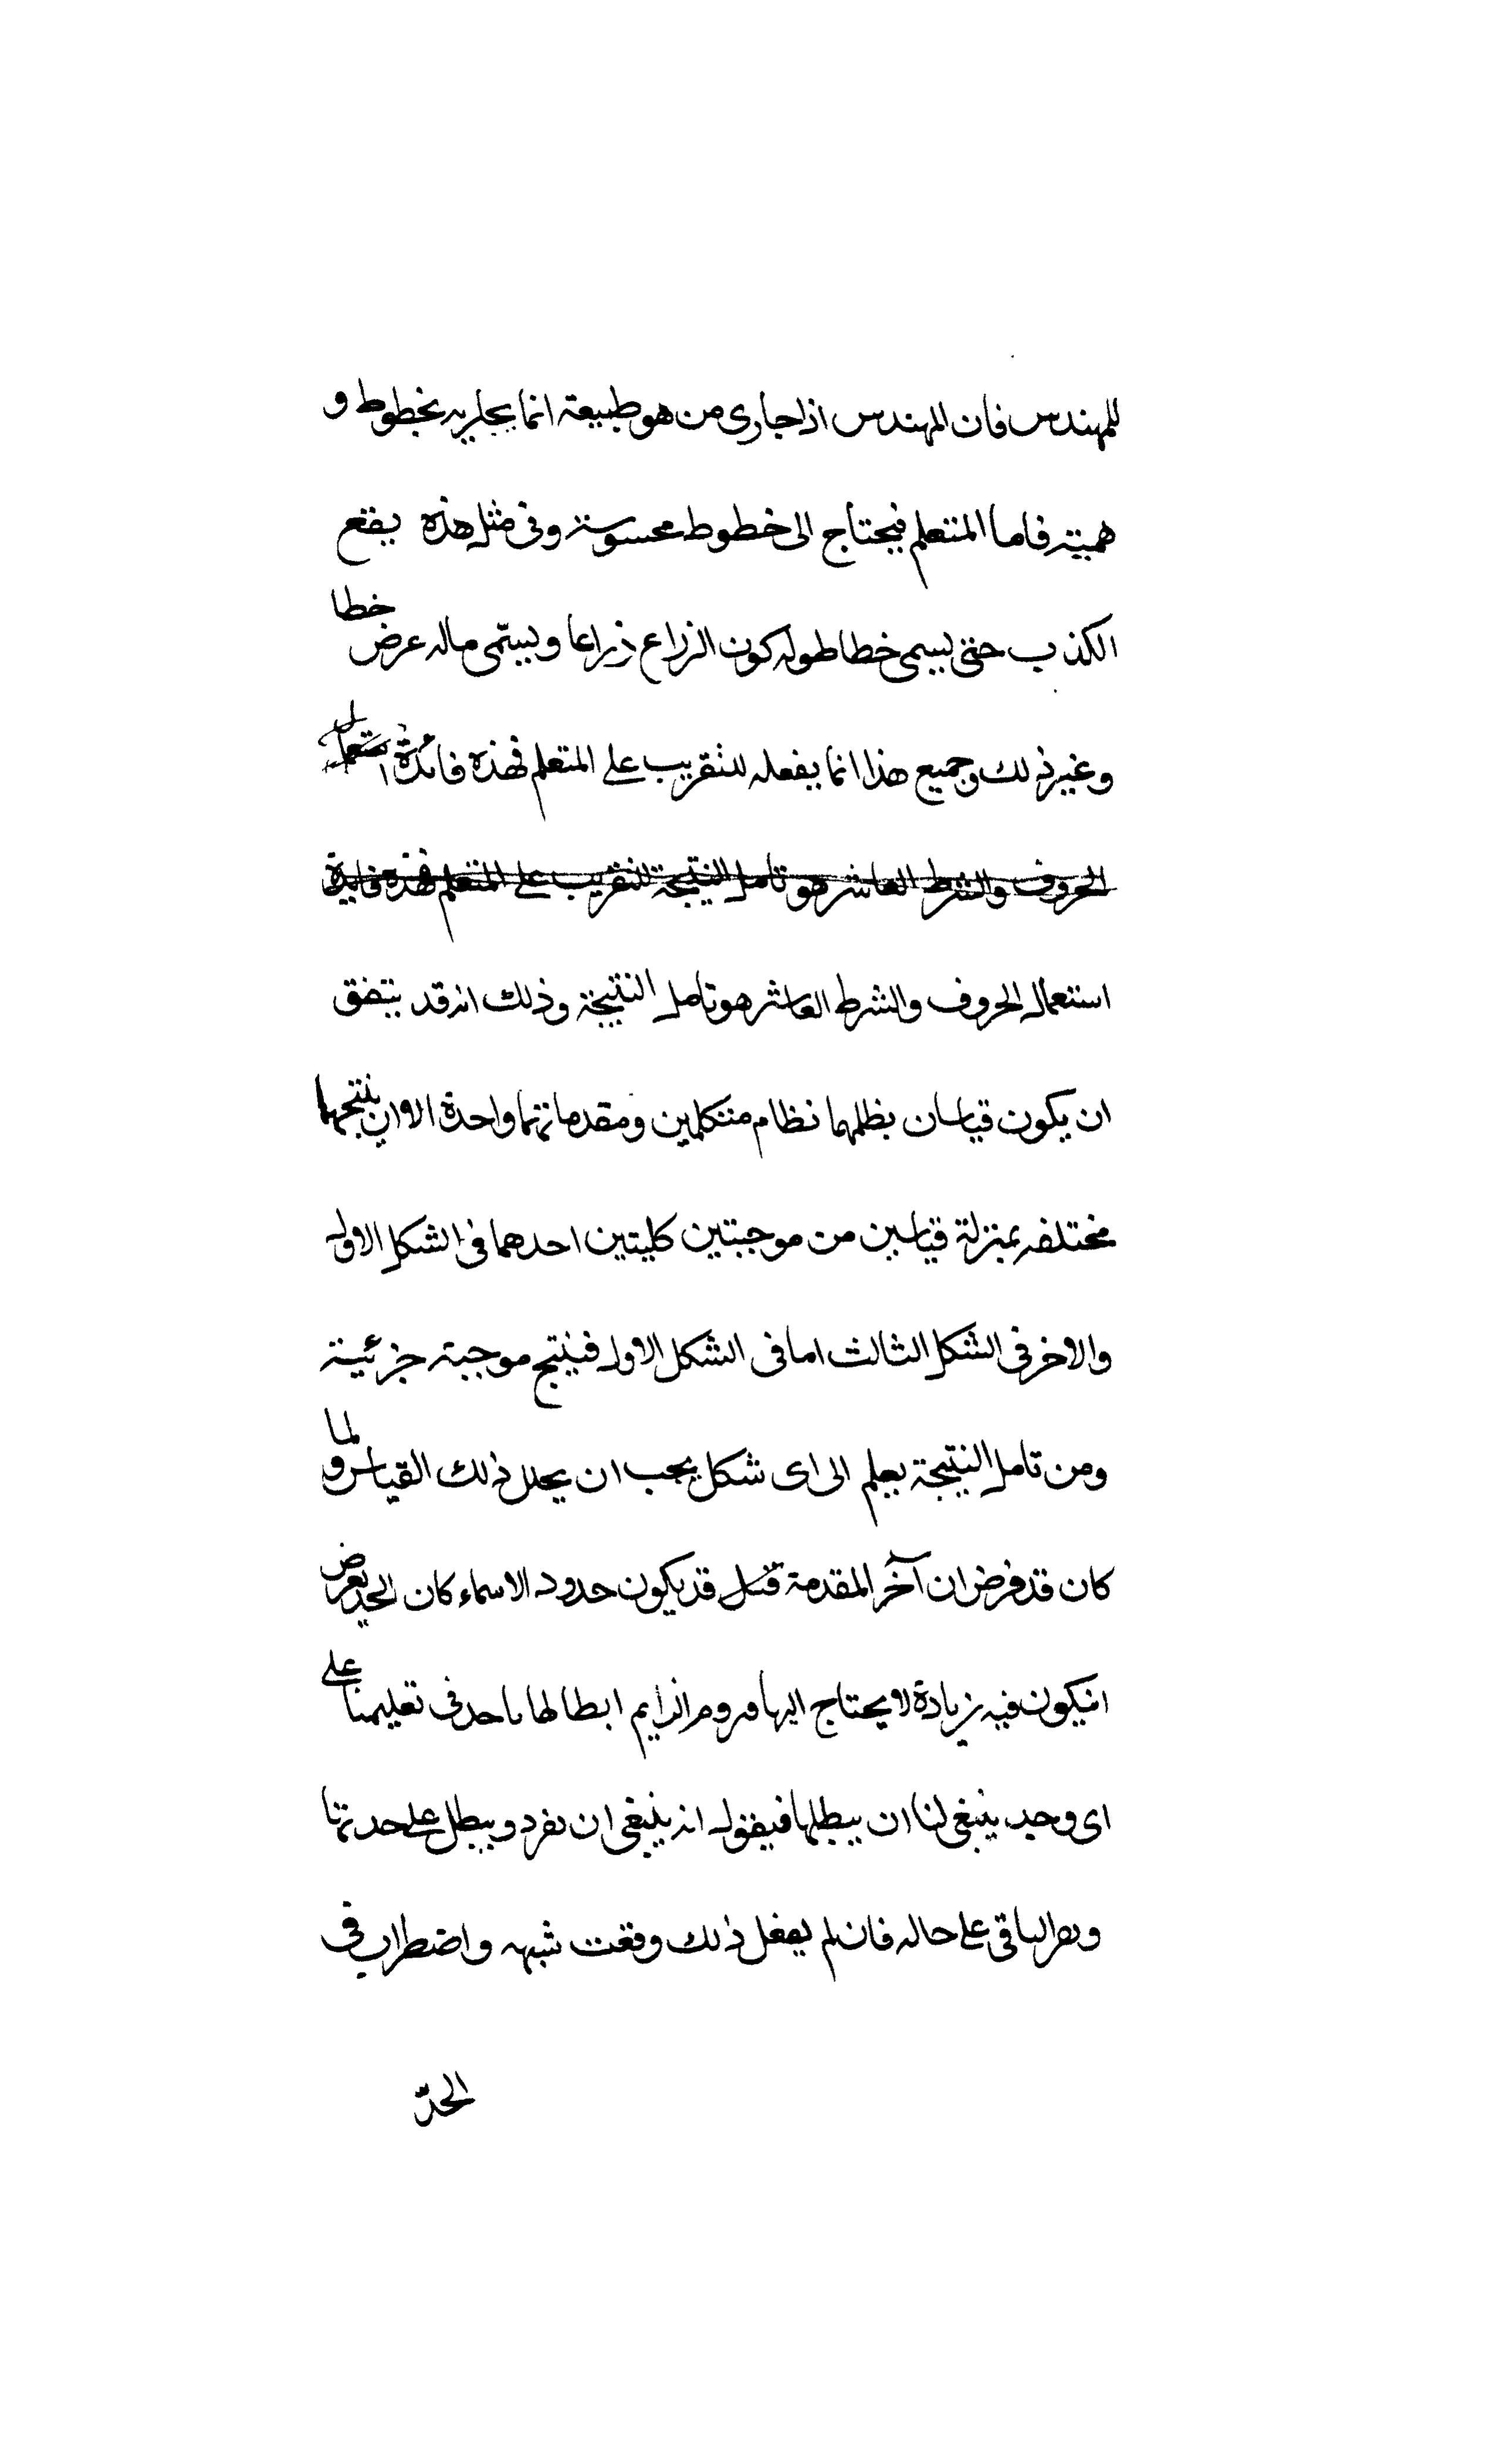 للمهندس فان المهندس اذا جارى من هو طبيعة انما يجاريه بخطوط و
همية فاما المتعلم فيحتاج الى خطوط محسوسة وفى مثل هذه يقع
الكذب حتى يسمى خطا طوله كون الزراع ذراعا ويسمّى ماله عرض خطا
وغير ذلك وجميع هذا انما يفعله للتقريب على المتعلم فهذه فائدة استعمال
الحروف والشرط العاشر هو تامل النتيجة للتقريب على المتعلم فهذه فايدة
استعمال الحروف والشرط العاشر هو تامل النتيجة وذلك انه قد يتفق
ان يكون قياسان نظمهما نظام متكلمين ومقدماتهما واحدة الا وان ينتجهما
مختلفه بمنزلة قياسين من موجبتين كليتين احدهما فى الشكل الاول
والاخر فى الشكل الثالث اما فى الشكل الاول فينتج موجبة جزئية
ومن تامل النتيجة يعلم الى اى شكل يجب ان يحلل ذلك القياس و لما
كان قد فرض ان آخر المقدمة قد يكون حدود الاسماء كان الحد يعرض
انيكون فيه زيادة لا يحتاج اليها ابطالها ياحد فى تعليمنا على
اى وجه ينبغى لنا ان يبطلها فيقول انه ينبغى ان يفرد ويبطل على حدتها
الباقى على حاله فان لم يفعل ذلك وقعت شبهه واضطراب فى
الحدّ